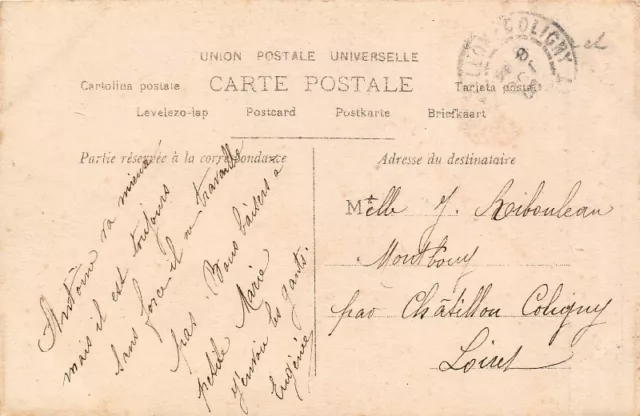 CHATILLON-COLIGNY
UNION POSTALE UNIVERSELLE
Cartolina postale CARTE POSTALE Tarjeta postal
Levelezo-lap Postcard Postkarte Briefkaart
Partie réservée à la correspondance
Antoine va mieux
mais il est toujours
sans force il ne travaille
pas Bons baisers à
petite Marie
les gants.
Eugénie
Adresse du destinataire
Melle J. Ribouleau
Montbouy
par Châtillon Coligny
Loiret